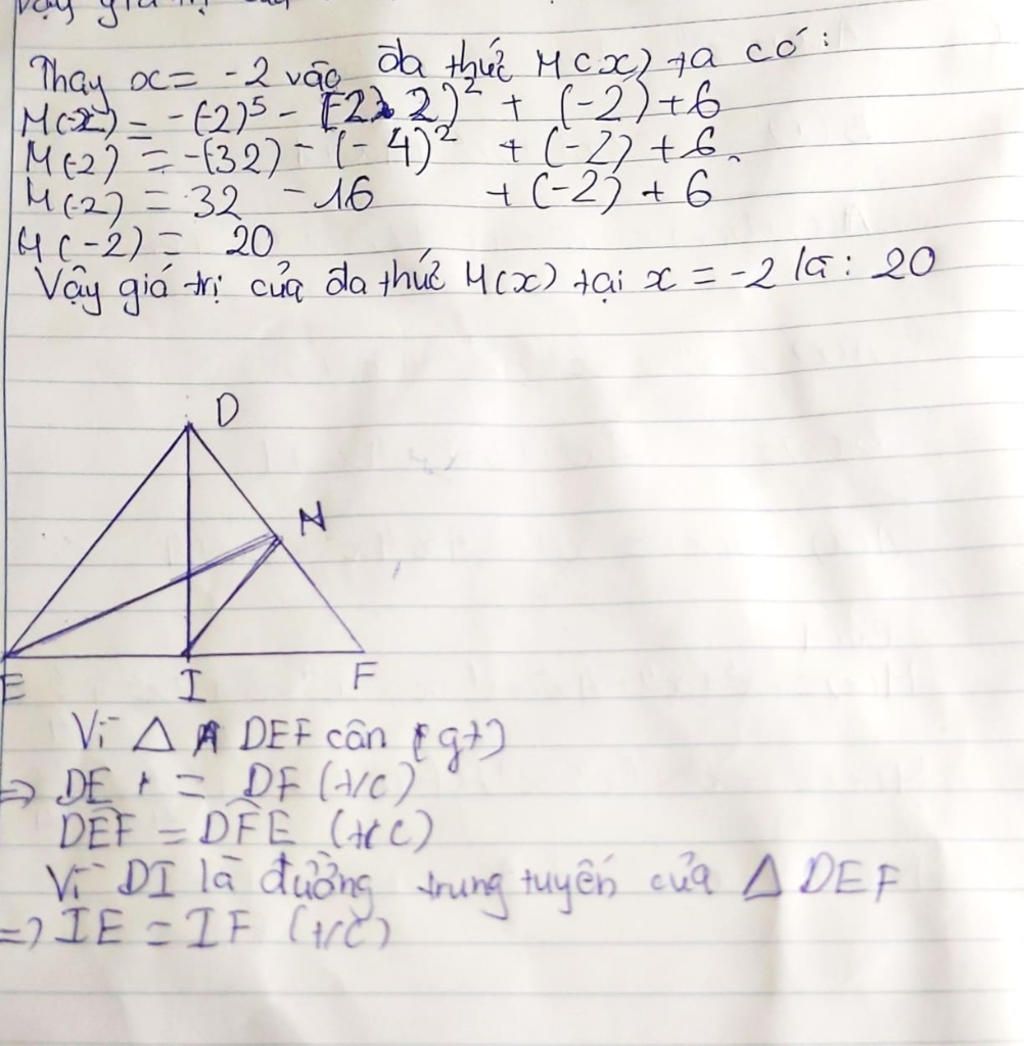 Vậy giá trị của
Thay x = -2 vào đa thức M(x) ta có:
M(-2) = -(-2)⁵ - (-2.2)² + (-2) + 6
M(-2) = -(32) - (-4)² + (-2) + 6.
M(-2) = 32 - 16 + (-2) + 6
M(-2) = 20
Vậy giá trị của đa thức M(x) tại x = -2 là: 20
D
N
E I F
Vì △ DEF cân (gt)
=> DE = DF (t/c)
DÊF = DF̂E (t/c)
Vì DI là đường trung tuyến của △ DEF
=> IE = IF (t/c)